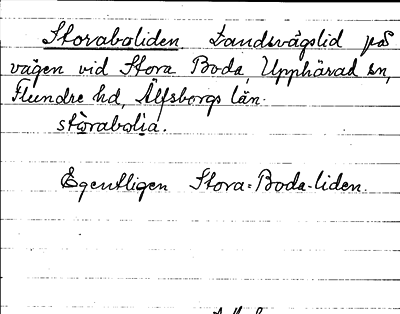 Storaboliden. Landsvägslid på
vägen vid Stora Boda, Upphärad sn,
Flundre hd, Älfsborgs län.
storabolia.
Egentligen Stora-Boda-liden.